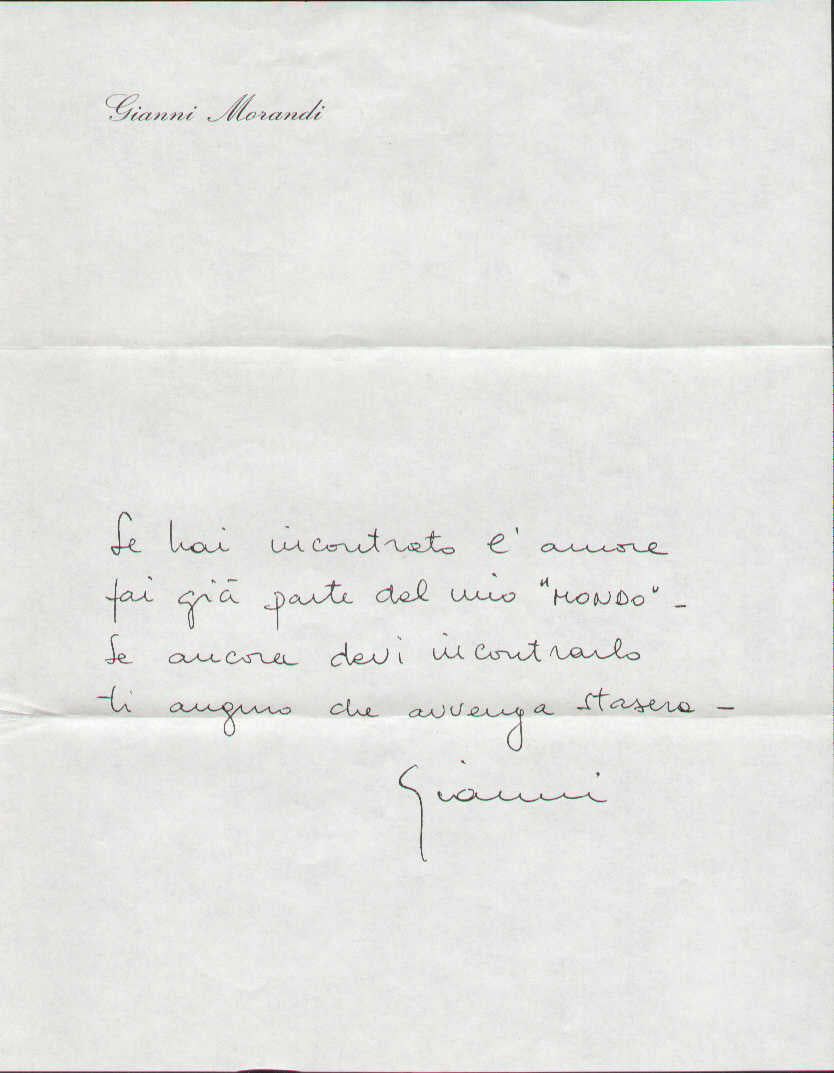 Gianni Morandi
Se hai incontrato l'amore
fai già parte del mio "MONDO" -
Se ancora devi incontrarlo
ti auguro che avvenga stasera -
Gianni